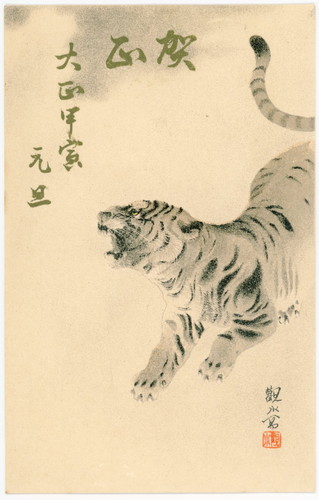 賀正
大正甲寅
元旦
觀水寫